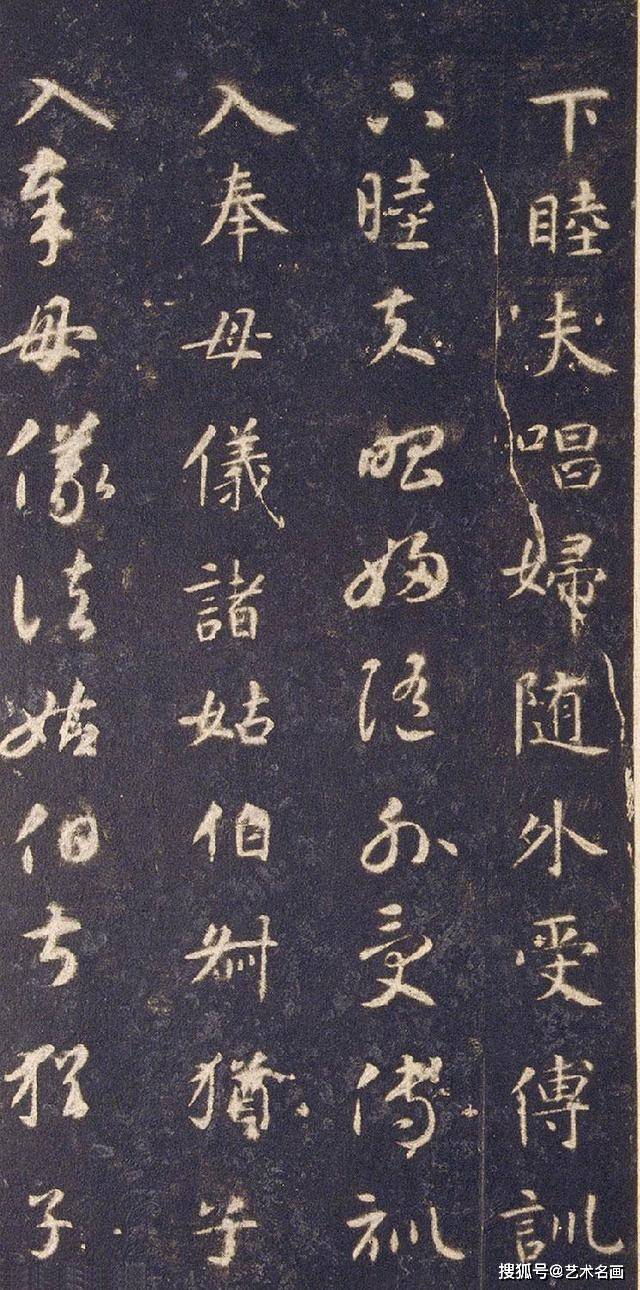 下睦夫唱婦随外受傅訓
下睦夫唱婦随外受傅訓
入奉母儀諸姑伯叔猶子
入奉母儀諸姑伯叔猶子
搜狐号@艺术名画